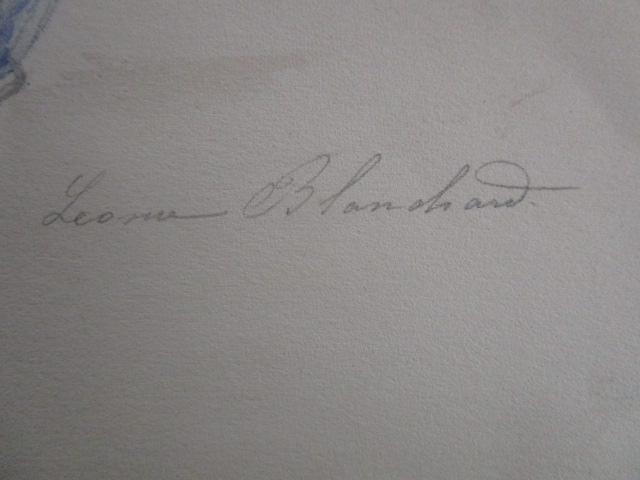 Leonie Blanchard